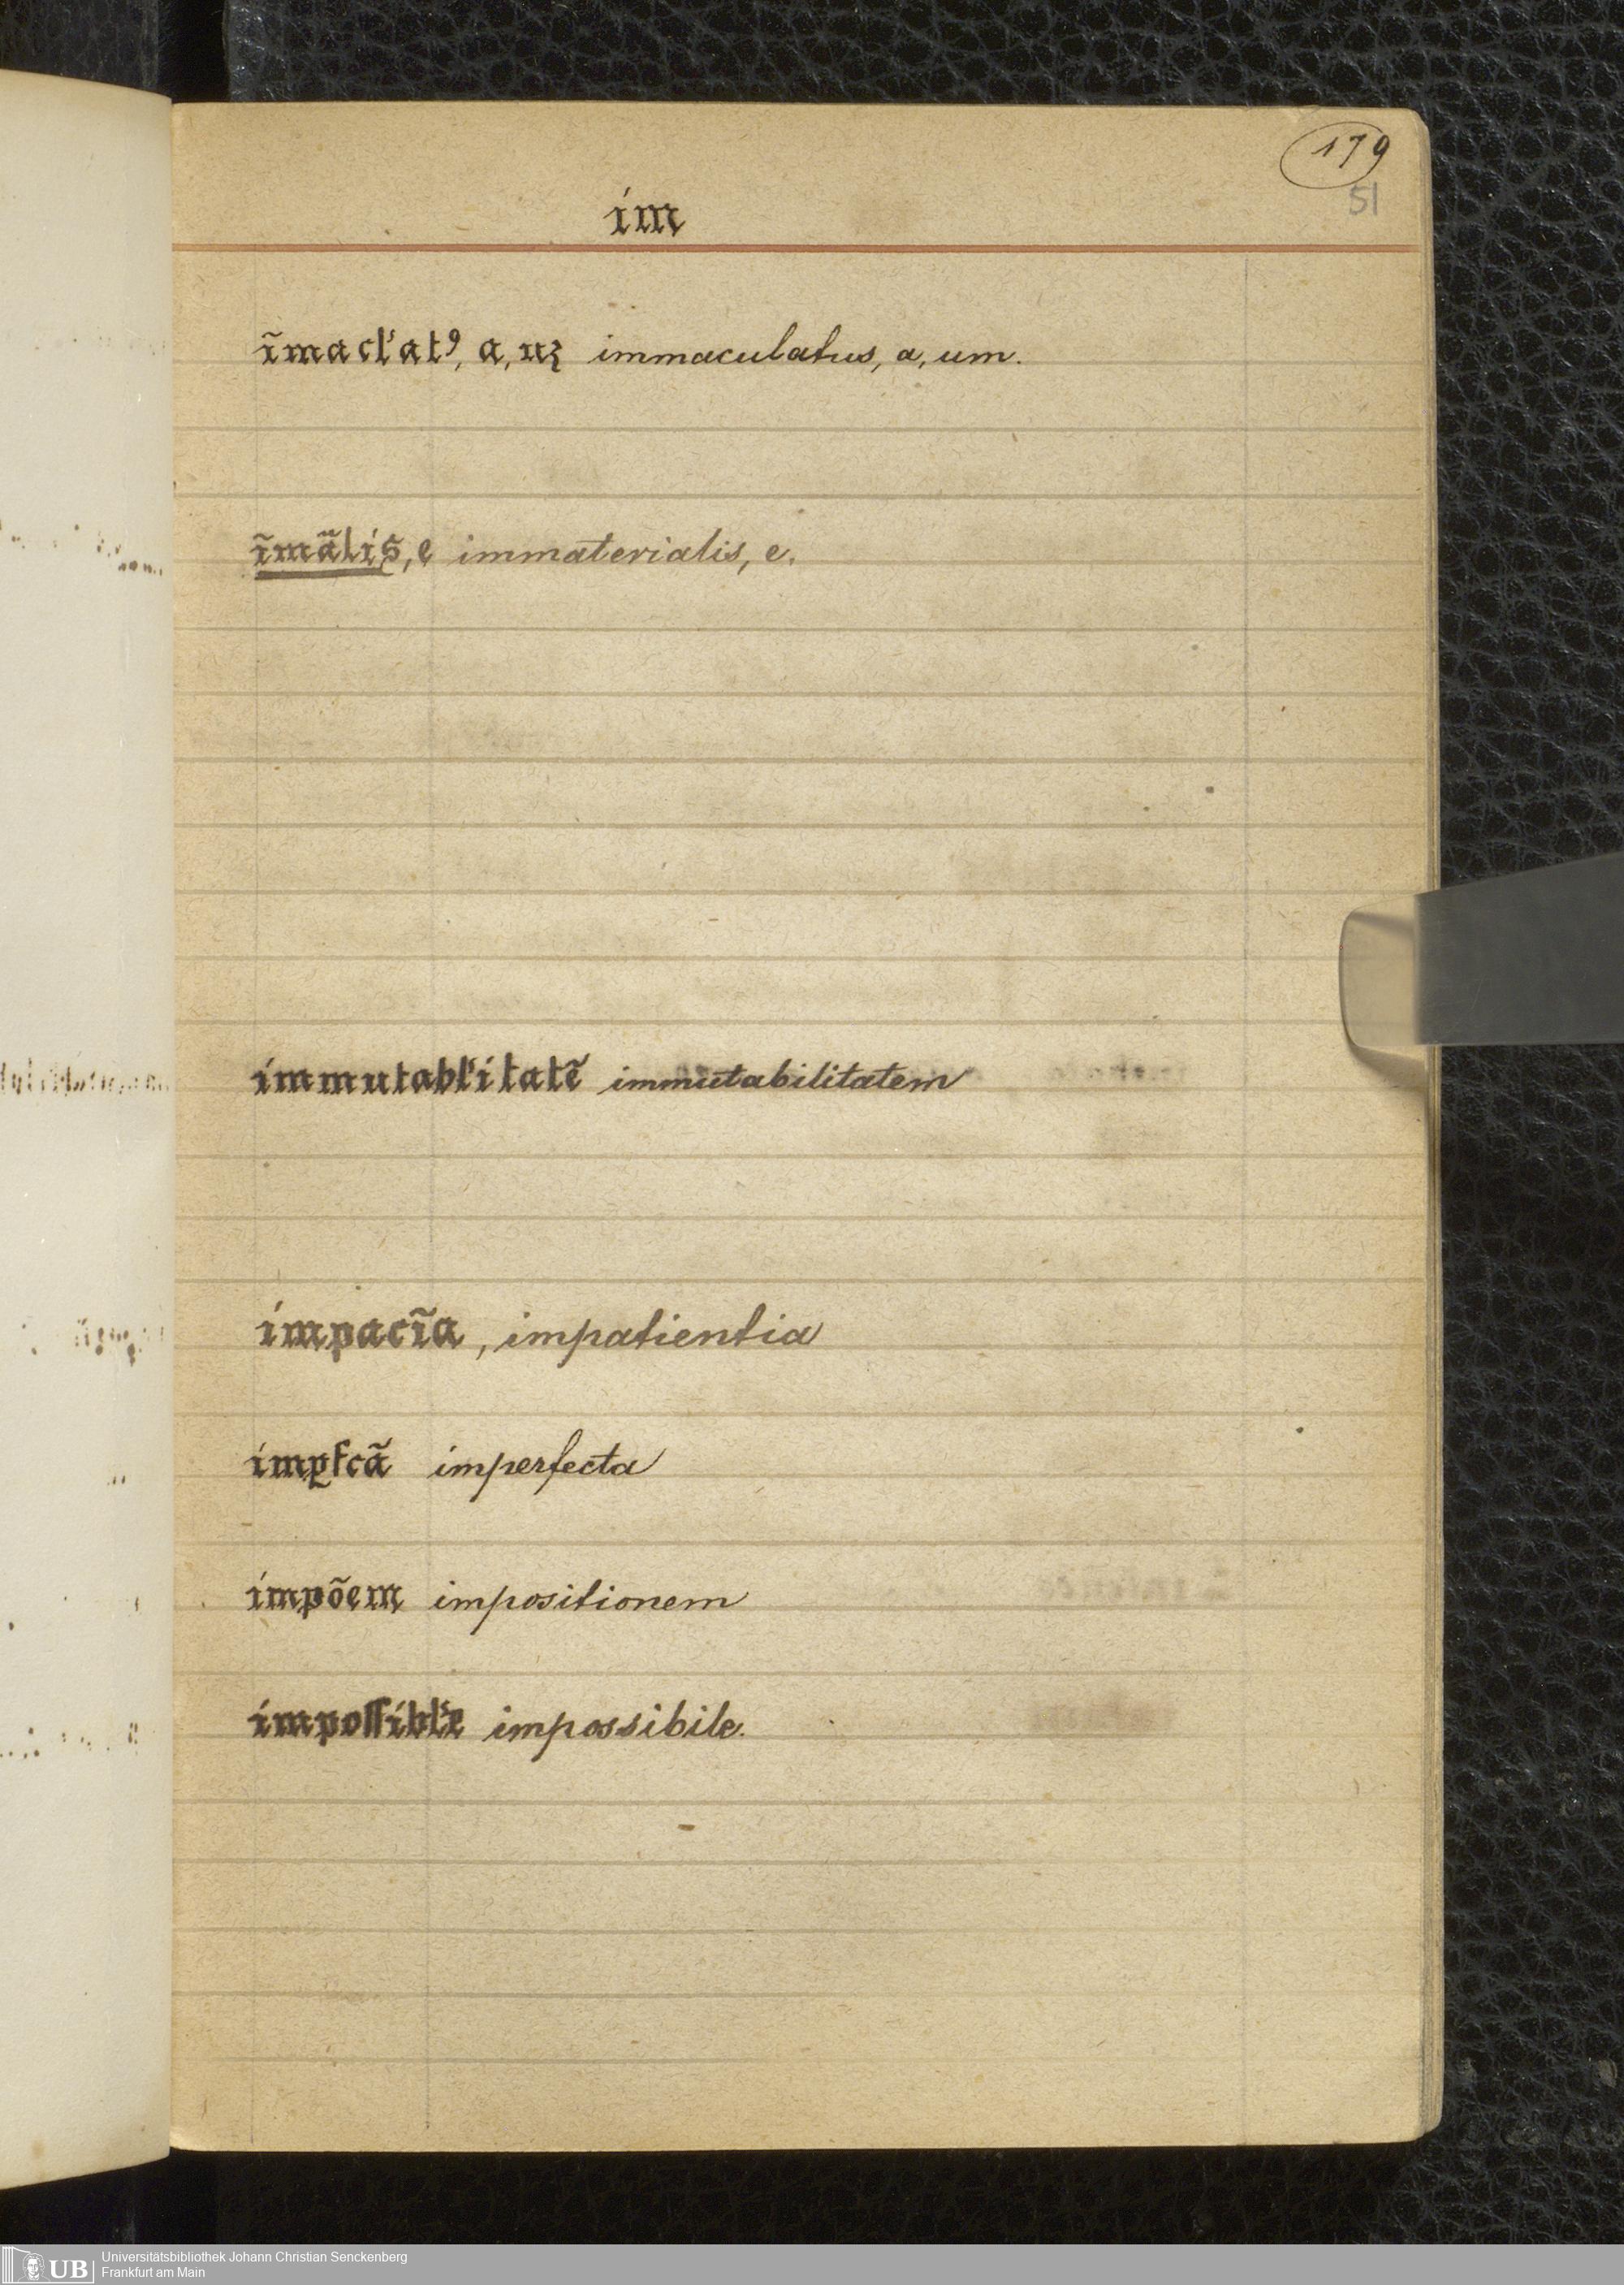 179
51
im
ĩmacl'atꝰ, a, uʒ immaculatus, a, um.
ĩmãlis, e immaterialis, e.
immutabl'itatẽ immutabilitatem
impacĩa, impatientia
imꝑfcã imperfecta
impõem impositionem
impoſſibl'e impossibile.
UB Universitätsbibliothek Johann Christian Senckenberg
Frankfurt am Main